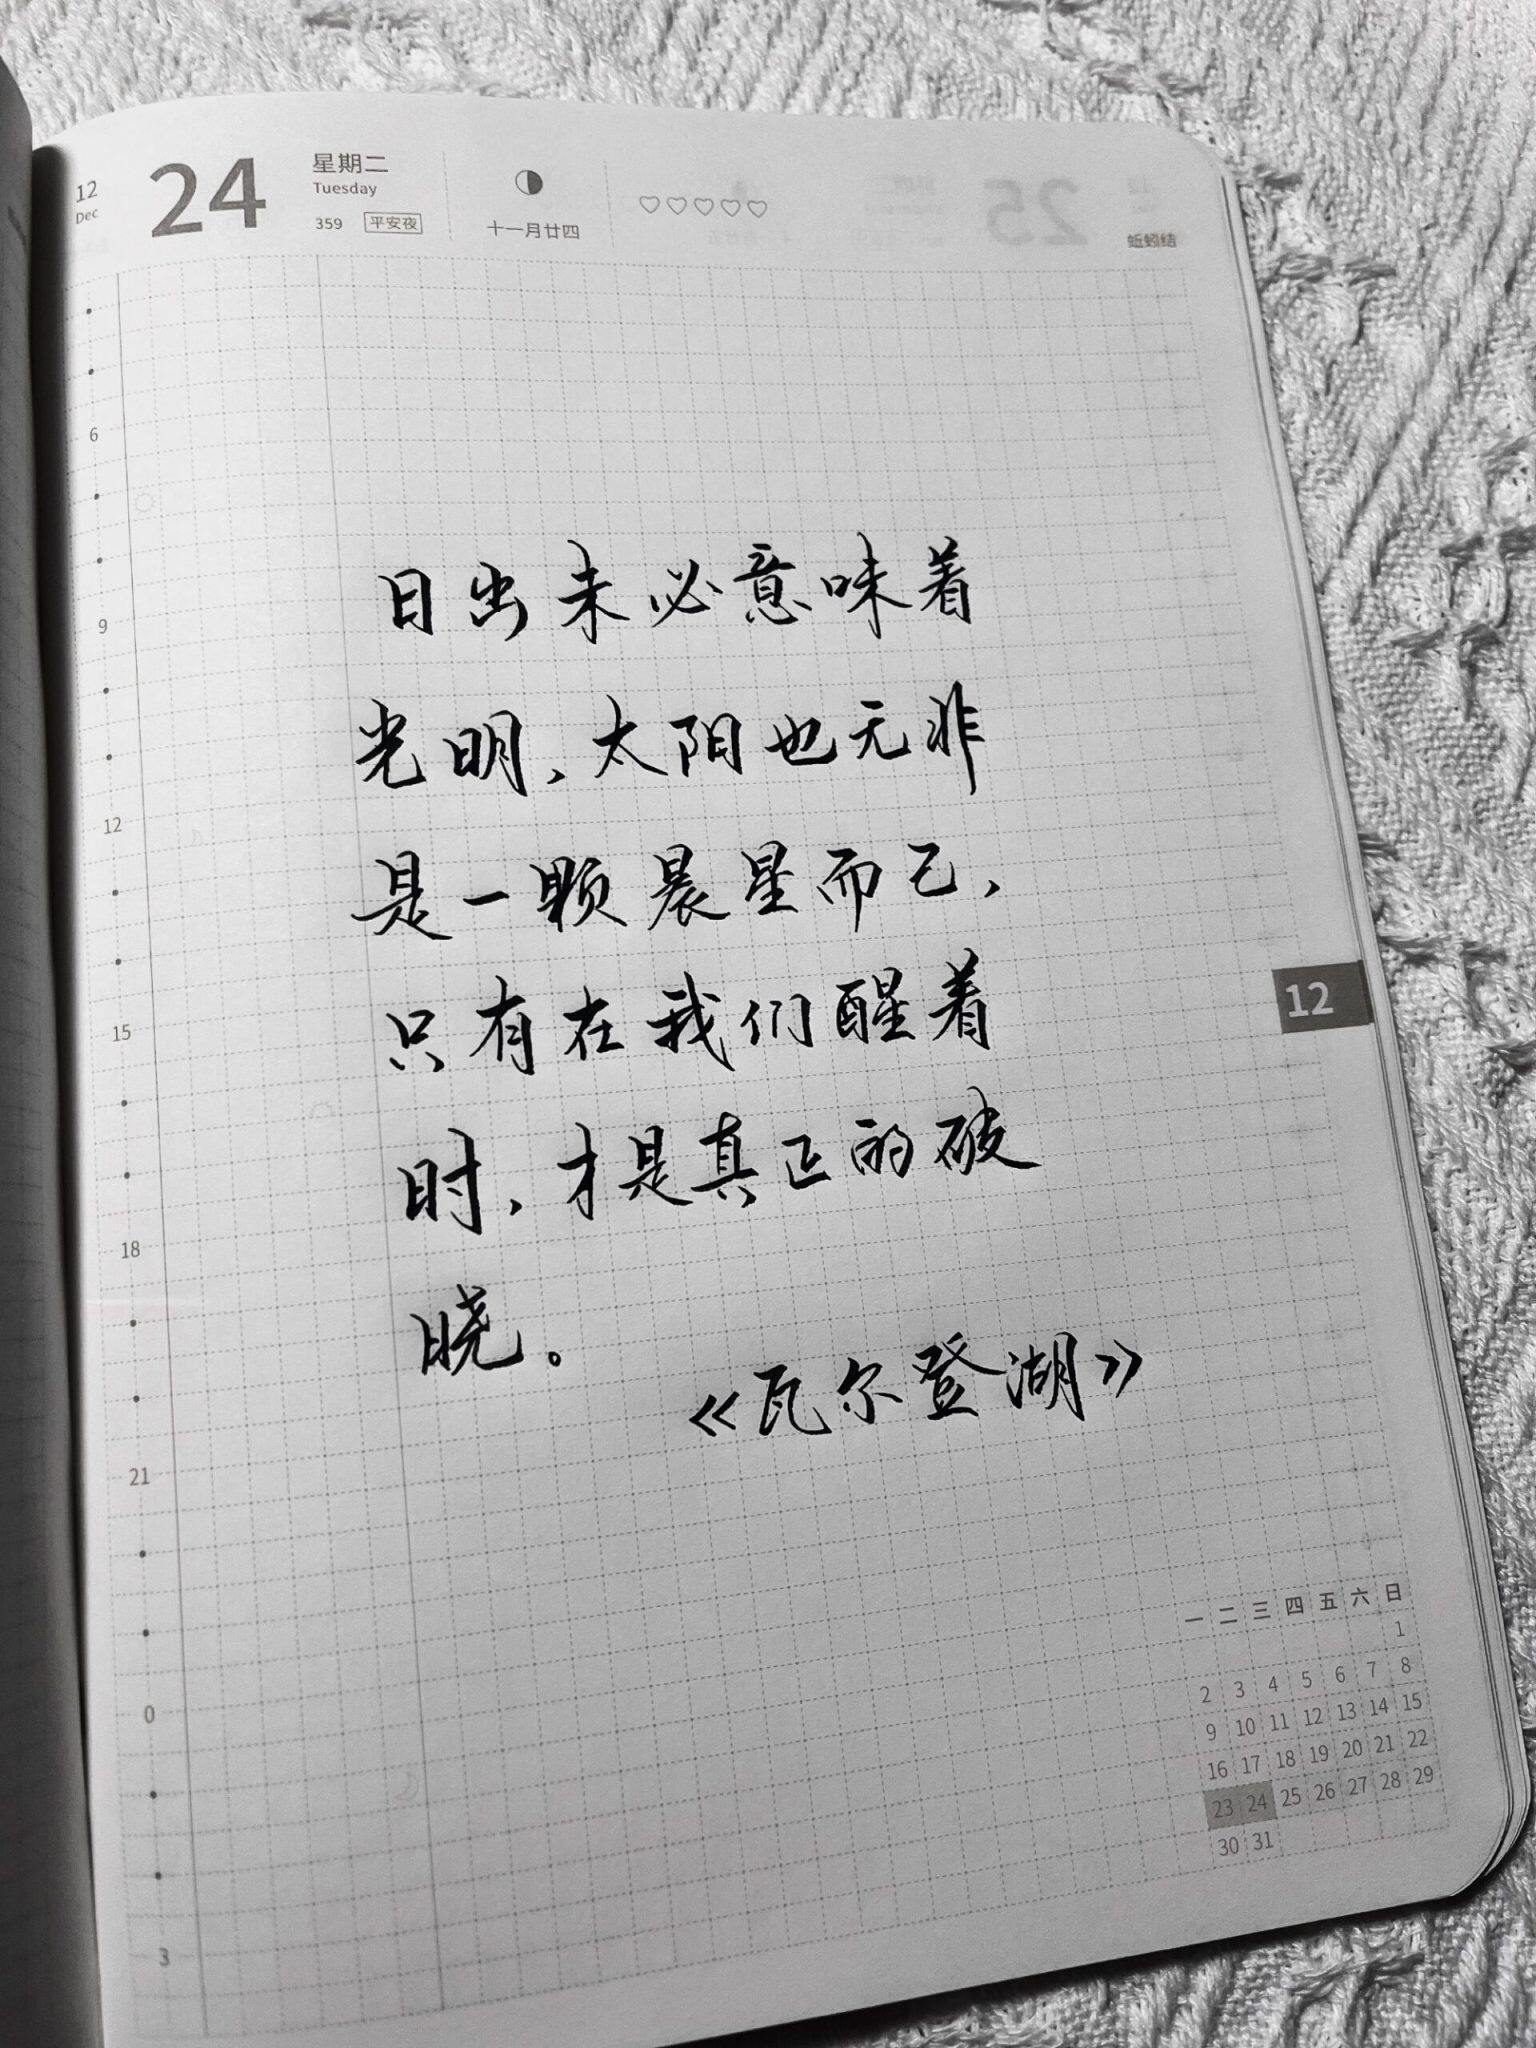 12
Dec
24
星期二
Tuesday
359 平安夜
十一月廿四
蚯蚓结
6
9
12
15
18
21
0
3
日出未必意味着
光明，太阳也无非
是一颗晨星而已，
只有在我们醒着
时，才是真正的破
晓。
《瓦尔登湖》
12
一 二 三 四 五 六 日
1
2 3 4 5 6 7 8
9 10 11 12 13 14 15
16 17 18 19 20 21 22
23 24 25 26 27 28 29
30 31